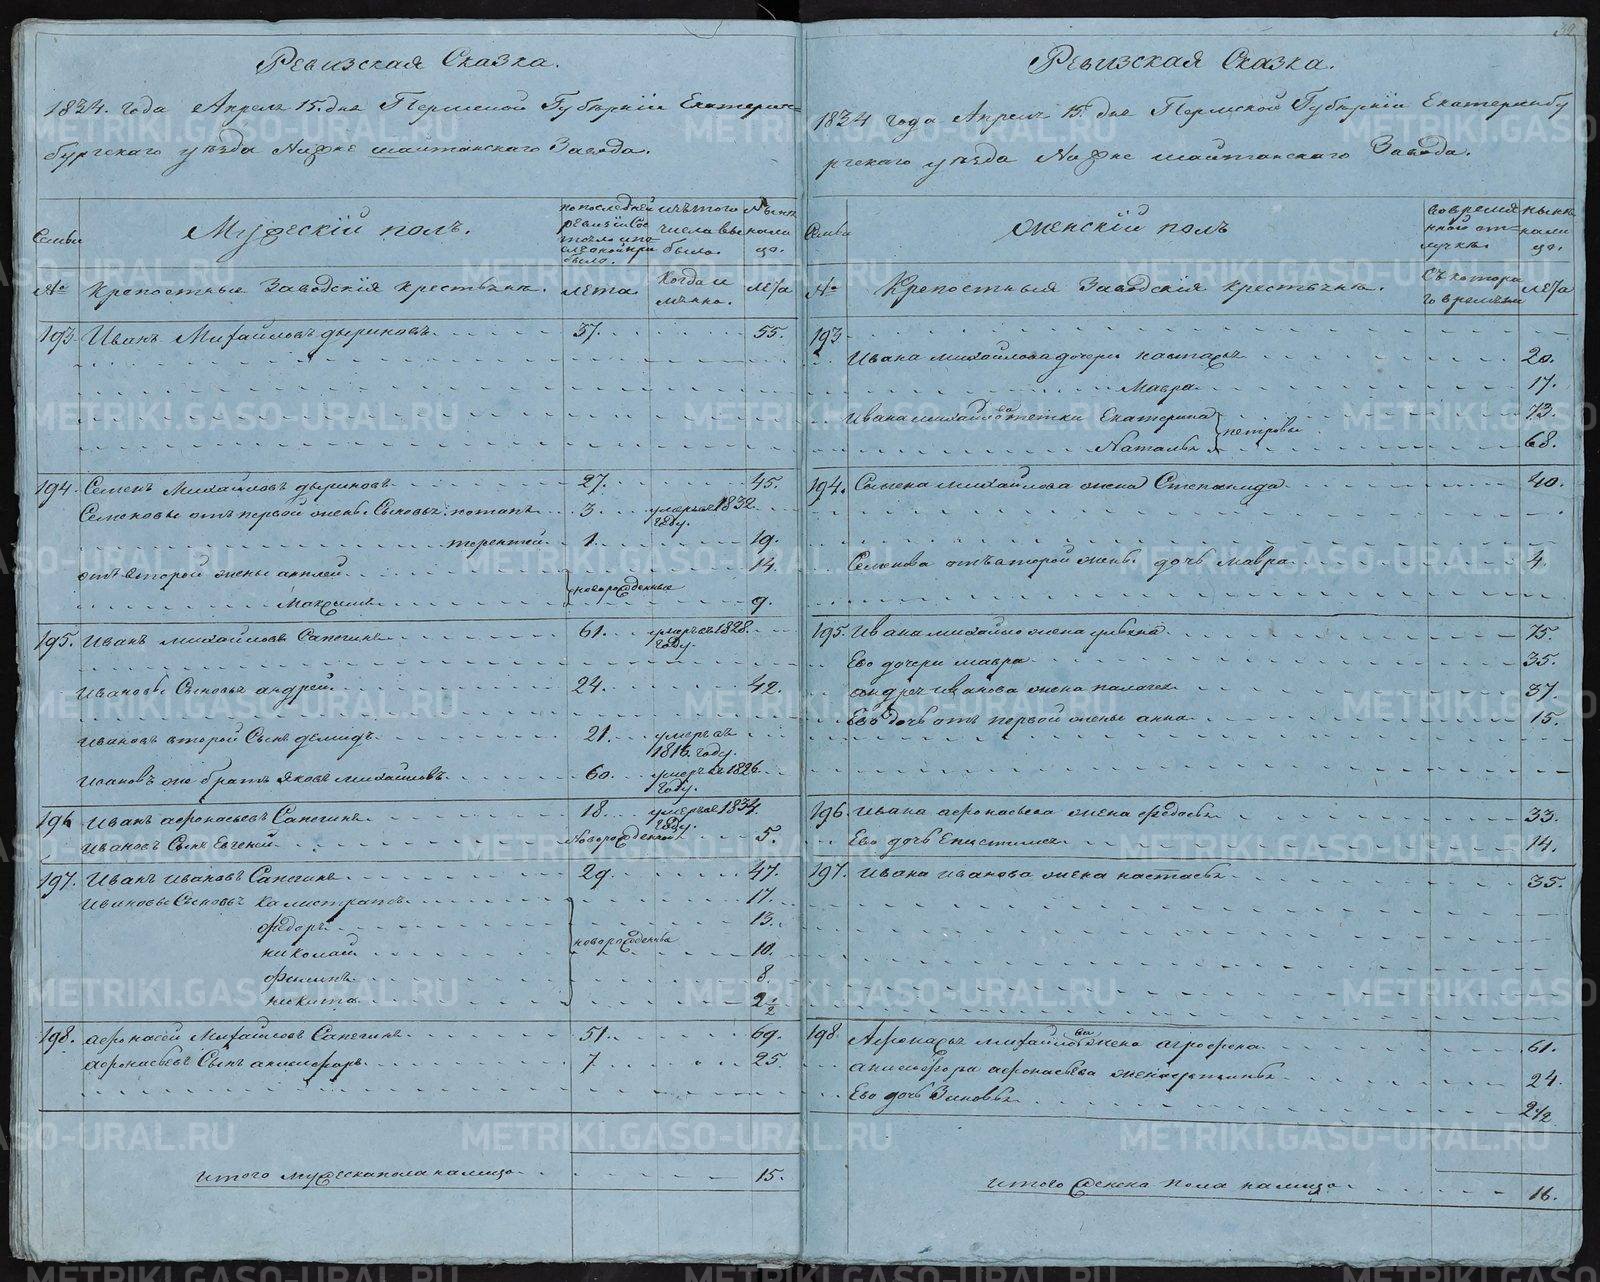 Ревизская Сказка.
1834. года Апреля 15. дня Пермской Губернiи Екатерин-
бургскаго уѣзда Нижне шайтанскаго Завода.
Семьи
Мужескiй полъ.
по последней ревизiи Состояло и после оной прибыло.
изъ того числа выбыло.
Нынѣ на лицо.
№
Крепостныя Заводскiя крестьяне.
лета.
Когда и
лета
193. Иванъ Михайловъ дыриновъ 37. 55.
194. Семенъ Михайловъ дыриновъ 27. 45.
Семеновы отъ первой жены Сыновья: потапъ 3. умеръ въ 1832 году.
терентей 1. 19.
отъ второй жены 14.
Максимъ новорожденные 9.
195. Иванъ михайловъ Сапегинъ 61. умеръ въ 1828. году.
Ивановы Сыновья андрей 24. 42.
Ивановъ второй Сынъ демидъ 21. умеръ въ 1816. году.
Ивановъ же братъ Яковъ михайловъ 60. умеръ въ 1826. году.
196 Иванъ афонасьевъ Сапегинъ 18. умеръ въ 1834. году.
Ивановъ Сынъ Евгеней новорожденной 5.
197. Иванъ Ивановъ Сапегинъ 29. 47.
Ивановы Сыновья калистратъ 17.
федоръ 13.
николай новорожденные 10.
филипъ 8.
никита 2 1/2
198. афонасей Михайловъ Сапегинъ 51. 69.
афонасьевъ Сынъ анисифоръ 7 25.
итого мужеска пола на лицо 15.
Ревизская Сказка.
1834 года Апреля 15. дня Пермской Губернiи Екатеринбу
ргскаго уѣзда Нижне шайтанскаго Завода.
Семьи
женскiй полъ
во временной отлучке.
нынѣ на лицо.
№
Крепостныя Заводскiя крестьяне.
Съ котораго времени
лета
193
Ивана михайлова дочери настасья 20.
Мавра 17.
Ивана михайлова тетки Екатерина 73.
Наталья петровы 68.
194. Семена михайлова жена Степанида 40.
Семенова отъ второй жены дочь мавра 4.
195. Ивана михайло жена улияна 75.
Ево дочери мавра 35.
андрея иванова жена палагея 37.
Ево дочь отъ первой жены анна 15.
196. Ивана афонасьева жена федосья 33.
Ево дочь Епистимея 14.
197. Ивана иванова жена настасья 35.
198. Афонасья михайлова жена агрофена 61.
анисифора афонасьева жена 24.
Ево дочь Зиновья 2 1/2
итого женска пола на лицо 16.
METRIKI.GASO-URAL.RU